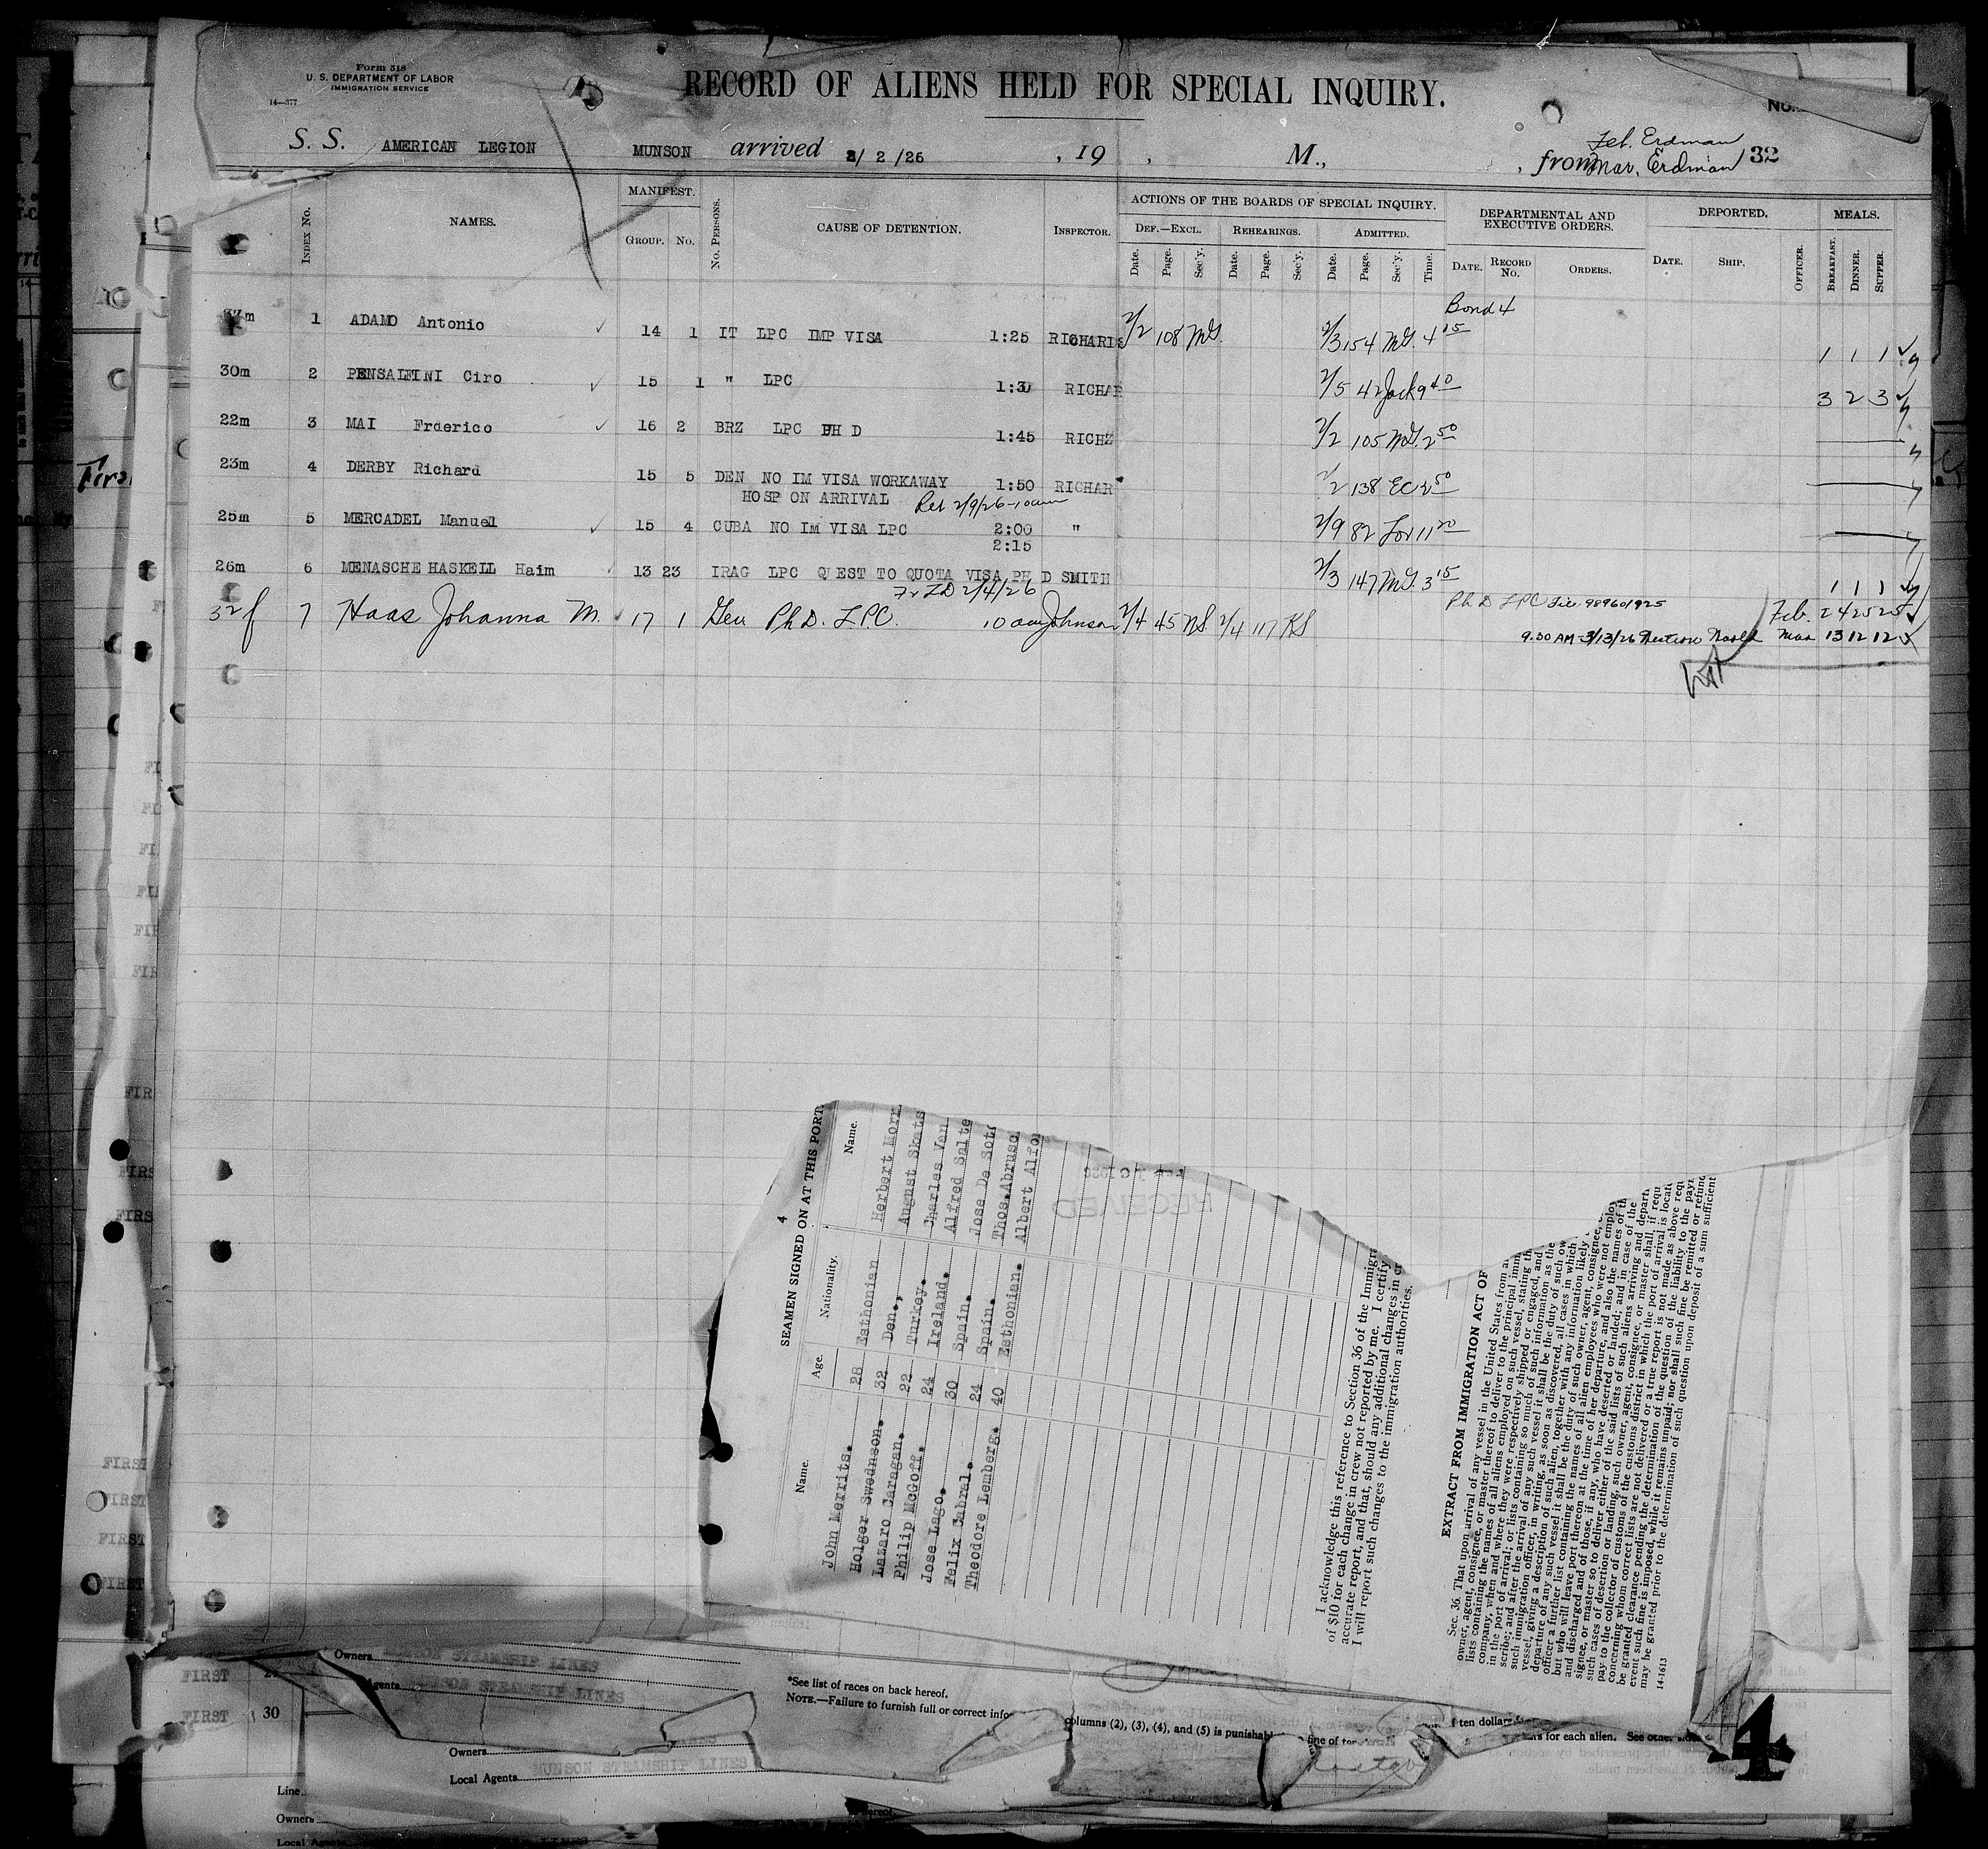 Form 518
U. S. DEPARTMENT OF LABOR
IMMIGRATION SERVICE
14—377
RECORD OF ALIENS HELD FOR SPECIAL INQUIRY.
No.
S. S. AMERICAN LEGION MUNSON arrived 2/ 2 /26 , 19 , M., , from Feb. Erdman
Mar. Erdman 32
MANIFEST.
ACTIONS OF THE BOARDS OF SPECIAL INQUIRY.
DEPARTMENTAL AND EXECUTIVE ORDERS.
DEPORTED.
MEALS.
Index No.
NAMES.
GROUP. No.
No. Persons.
CAUSE OF DETENTION.
INSPECTOR.
DEF.—EXCL. REHEARINGS. ADMITTED.
Date. Page. Sec'y. Date. Page. Sec'y. Date. Page. Sec'y. Time.
DATE. RECORD No. ORDERS. DATE. SHIP. OFFICER. BREAKFAST. DINNER. SUPPER.
Bond 4
1 ADAMO Antonio 14 1 IT LPC IMP VISA 1:25 RICHARDS 2/2 108 MG. 2/3 154 MG. 4 15 1 1 1
30m 2 PENSALFINI Ciro 15 1 " LPC 1:30 RICHAR 2/5 42 Jack 9 40 3 2 3
22m 3 MAI Frderico 16 2 BRZ LPC PH D 1:45 RICH 2/2 105 MG. 2 50
23m 4 DERBY Richard 15 5 DEN NO IM VISA WORKAWAY 1:50 RICHAR 2/2 138 EC 2 50
HOSP ON ARRIVAL Rel 2/9/26-10am
25m 5 MERCADEL Manuel 15 4 CUBA NO IM VISA LPC 2:00 " 2/9 82 11 20
2:15
26m 6 MENASCHE HASKELL Haim 13 23 IRAG LPC QUEST TO QUOTA VISA PH D SMITH 2/3 147 MG. 3 15 1 1 1
2/4/26
Ph D LPC 98960/925
32f 7 Haas Johanna M. 17 1 Ger Ph.D. L.P.C. 10 am Johnson 2/4 45 NS 2/4 117 KS Feb. 24 25 25
9.30 AM 3/13/26 Mar 13 12 12
4
SEAMEN SIGNED ON AT THIS PORT
Name. Age. Nationality. Name.
John Merrits. 28 Esthonian Herbert Morr
Holger Swednson. 32 Den., August Skats
Lazaro Caragan. 22 Turkey. Charles Van
Philip McGoff. 24 Ireland. Alfred Salte
Jose Lago. 30 Spain. Jose De Soto
Felix Cabral. 24 Spain. Thos.Abrusc
Theodore Lemberg. 40 Esthonian. Albert Alfo
RECEIVED
I acknowledge this reference to Section 36 of the Immigra
of $10 for each change in crew not reported by me. I certify
accurate report, and that, should any additional changes in cr
I will report such changes to the immigration authorities.
EXTRACT FROM IMMIGRATION ACT OF
Sec. 36. That upon arrival of any vessel in the United States from a
owner, agent, consignee, or master thereof to deliver to the principal immi
lists containing the names of all aliens employed on such vessel, stating th
company, when and where they were respectively shipped or engaged, and
in the port of arrival; or lists containing so much of such information as the
scribe; and after the arrival of any such vessel it shall be the duty of such ow
such immigration officer, in writing, as soon as discovered, all cases in which
vessel, giving a description of such alien, together with any information likely
departure of any such vessel it shall be the duty of such owner, agent, consignee,
officer a further list containing the names of all alien employees who were not employ
but who will leave port thereon at the time of her departure, and also the names of th
and discharged and of those, if any, who have deserted or landed; and in case of the
signee, or master so to deliver either of the said lists of such aliens arriving and depart
such cases of desertion or landing, such owner, agent, consignee, or master shall, if requ
pay to the collector of customs of the customs district in which the port of arrival is locat
concerning whom correct lists are not delivered or a true report is not made as above requ
be granted clearance pending the determination of the question of the liability to the pay
event such fine is imposed, while it remains unpaid; nor shall such fine be remitted or refund
may be granted prior to the determination of such question upon deposit of a sum sufficient
14-1613
FIRST
FIRST
FIRST
FIRST
FIRST
FIRST
FIRST
FIRST
FIRST 30
Owners MUNSON STEAMSHIP LINES
Agents MUNSON STEAMSHIP LINES
*See list of races on back hereof.
NOTE.—Failure to furnish full or correct info columns (2), (3), (4), and (5) is punishabl fine of ten dollars for each alien. See other
Owners
Local Agents MUNSON STEAMSHIP LINES
Line
Owners
Local Agents LINES
4